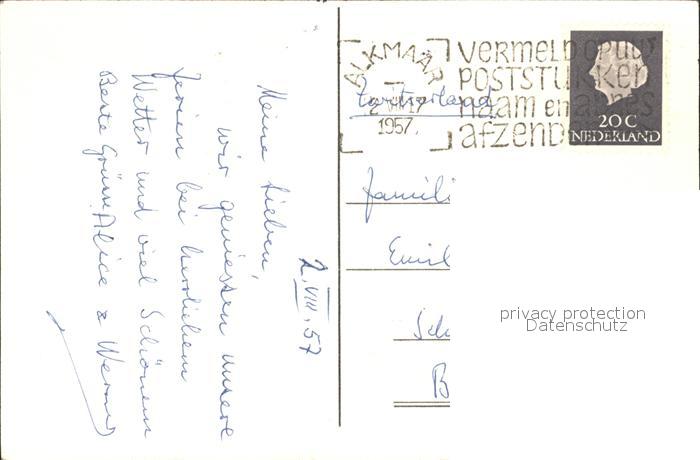 2.VIII.57
Meine Lieben,
wir geniessen unsere
Ferien bei herrlichem
Wetter und viel Schönem
Beste Grüsse Alice & Werner
ALKMAAR
2 VIII 17
1957.
VERMELD OP UW
POSTSTUKKEN
naam en adres
afzender
20 C
NEDERLAND
Switzerland
Famili
Emil
Sch
B
privacy protection
Datenschutz